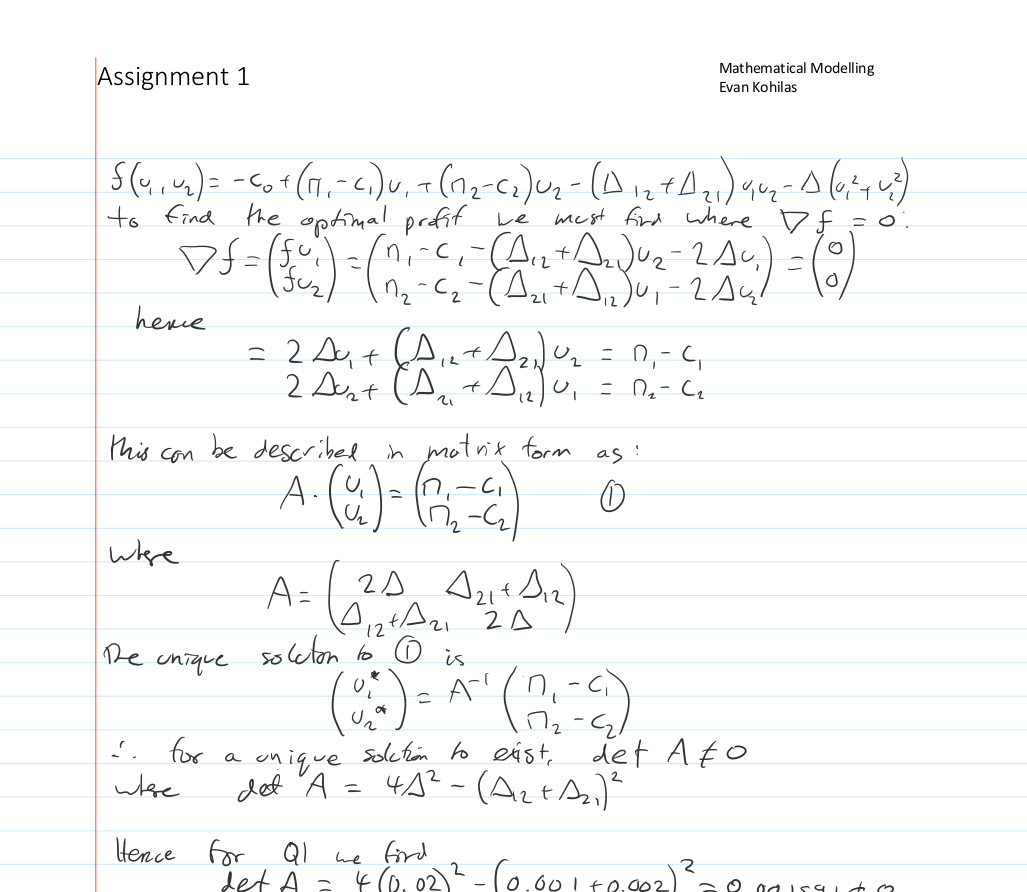 Assignment 1
Mathematical Modelling
Evan Kohilas
f(υ₁, υ₂) = -c₀ + (Π₁-c₁)υ₁ + (Π₂-c₂)υ₂ - (Δ₁₂+Δ₂₁)υ₁υ₂ - Δ(υ₁²+υ₂²)
to find the optimal profit we must find where ∇f = 0:
∇f = (fυ₁ fυ₂) = (Π₁-c₁-(Δ₁₂+Δ₂₁)υ₂-2Δυ₁ Π₂-c₂-(Δ₂₁+Δ₁₂)υ₁-2Δυ₂) = (0 0)
hence
= 2Δυ₁ + (Δ₁₂+Δ₂₁)υ₂ = Π₁-c₁
2Δυ₂ + (Δ₂₁+Δ₁₂)υ₁ = Π₂-c₂
this can be described in matrix form as:
A·(υ₁ υ₂) = (Π₁-c₁ Π₂-c₂) ①
where
A = (2Δ Δ₂₁+Δ₁₂ Δ₁₂+Δ₂₁ 2Δ)
The unique soluton to ① is
(υ₁* υ₂*) = A⁻¹ (Π₁-c₁ Π₂-c₂)
∴ for a unique solution to exist, det A ≠ 0
where det A = 4Δ² - (Δ₁₂+Δ₂₁)²
Hence for Q1 we find
det A = 4(0.02)² - (0.001+0.002)² =